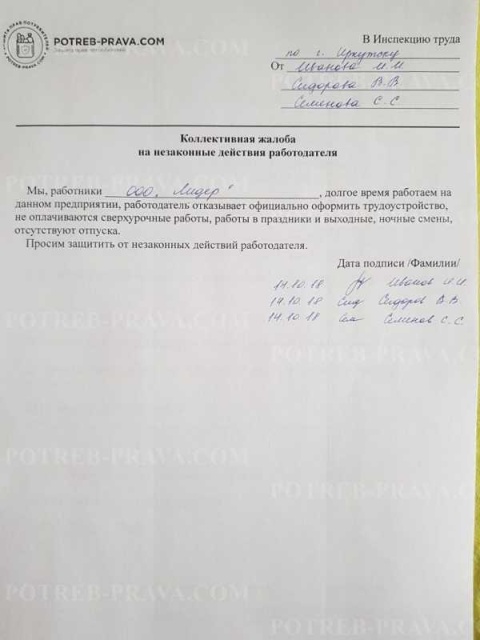 POTREB-PRAVA.COM
В Инспекцию труда
по г. Иркутску
От Иванова И.И
Сидорова В.В
Семенова С.С
Коллективная жалоба
на незаконные действия работодателя
Мы, работники ООО "Лидер", долгое время работаем на
данном предприятии, работодатель отказывает официально оформить трудоустройство,
не оплачиваются сверхурочные работы, работы в праздники и выходные, ночные смены,
отсутствуют отпуска.
Просим защитить от незаконных действий работодателя.
Дата подписи /Фамилии/
14.10.18 Иванов И.И
14.10.18 Сид Сидоров В.В
14.10.18 Сем Семенов С.С.
POTREB-PRAVA.COM
POTREB-PRAVA.COM
POTREB-PRAVA.COM